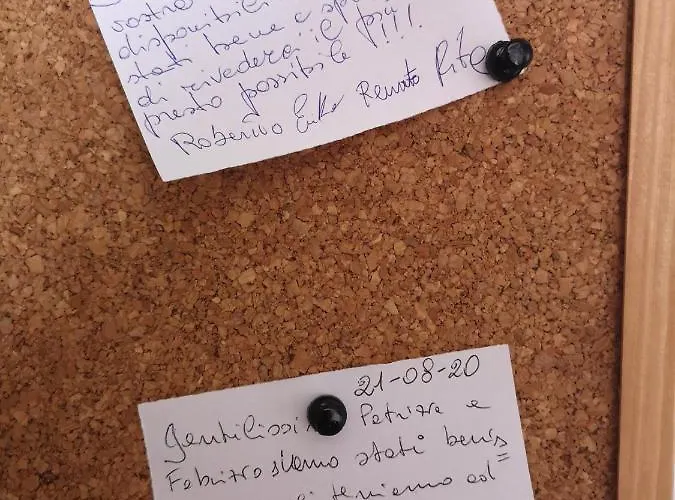 vostre
disponibili
stati bene e
di rivederci il più
presto possibile !!!
Roberto Erika Renato Rita
21-08-20
Gentilissi Patrizia e
Fabrizio siamo stati benis
teniamo ad